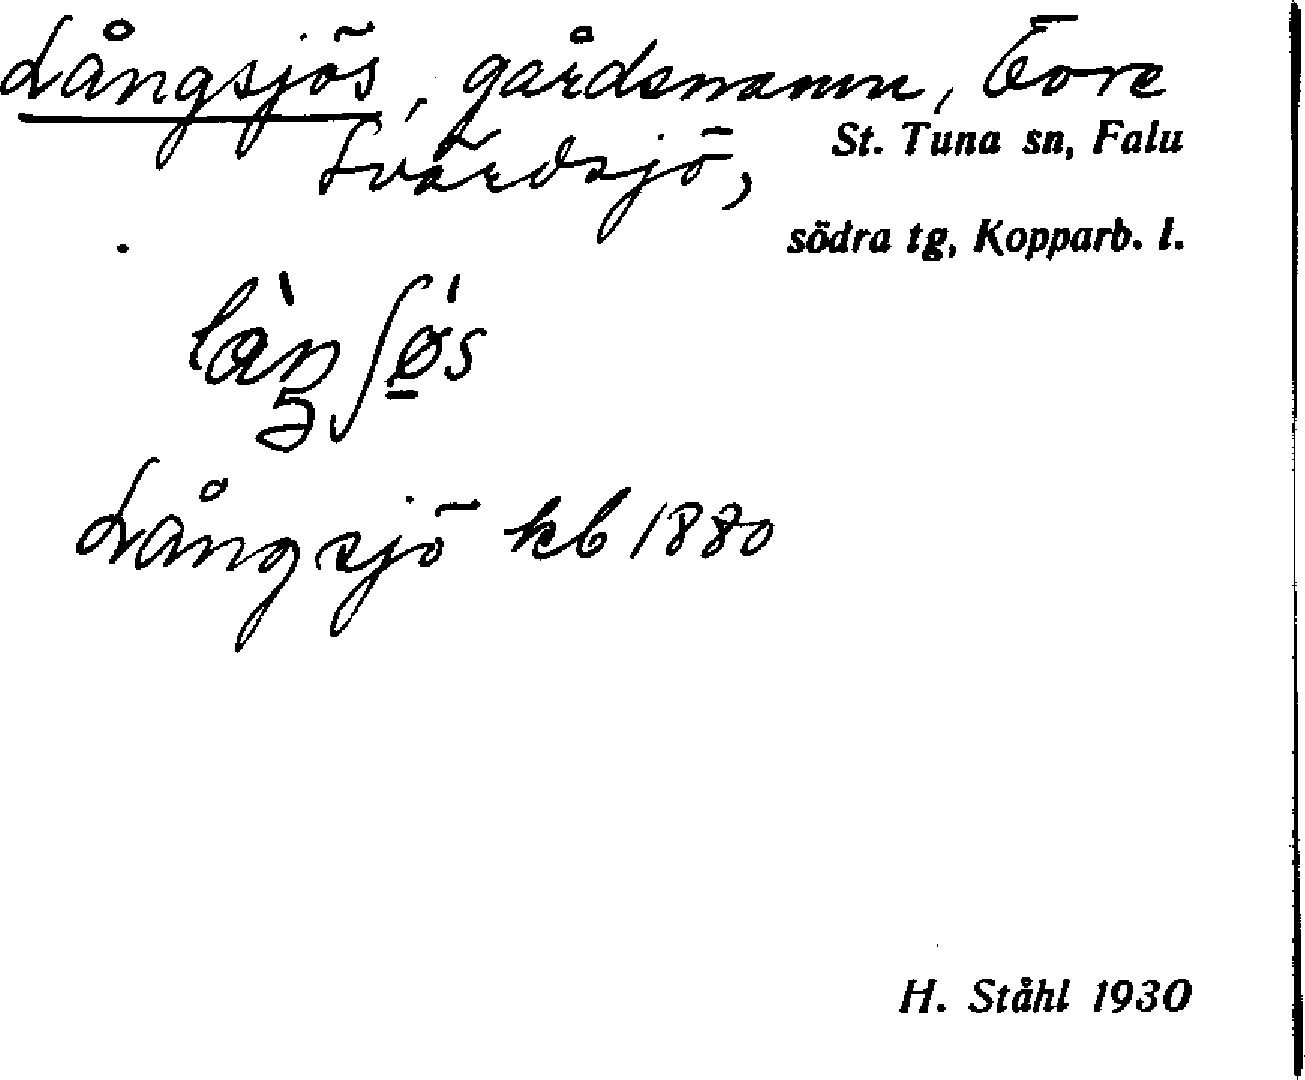 Långsjös, gårdsnamn, Övre
Svärdsjö, St. Tuna sn, Falu
södra tg, Kopparb. l.
Långsjö kb 1880
H. Ståhl 1930